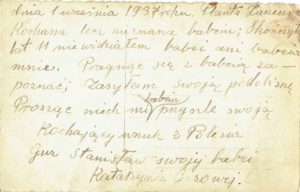 dnia 1 września 1937 roku.
Kochana lecz nieznana babciu, Skończyłem
lat 11 niewidziałem babci ani babcia
mnie. Pragnąc się z babcią za-
poznać Zasyłam swoją podobiznę
Prosząc niech mi babcia przyśle swoją
Kochający wnuk z Polesia
Gur Stanisław swojej babci
Katarzynie